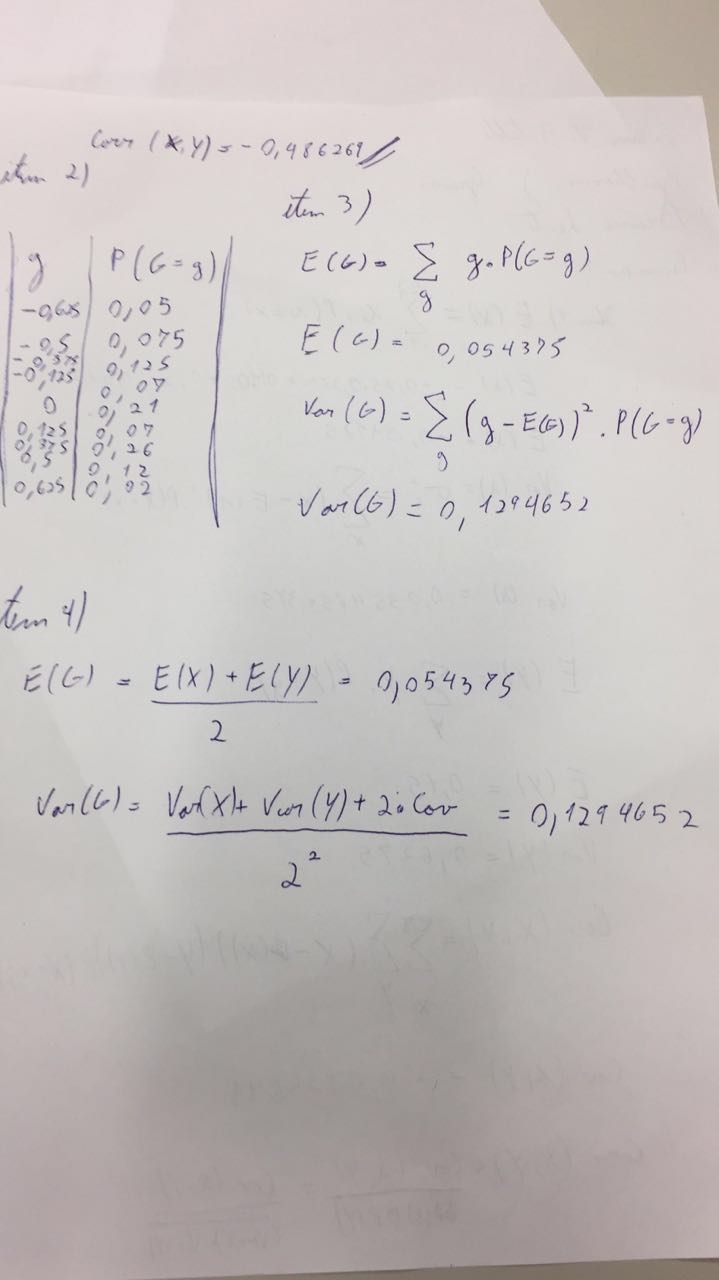 Corr (X,Y) = - 0,486269
item 2)
g P(G=g)
-0,625 0,05
-0,5 0,075
-0,375 0,125
-0,125 0,07
0 0,21
0,125 0,07
0,375 0,26
0,5 0,12
0,625 0,02
item 3)
E(G) = Σ g·P(G=g)
g
E(G) = 0,054375
Var(G) = Σ (g - E(G))². P(G=g)
g
Var(G) = 0,1294652
tem 4)
E(G) = E(X) + E(Y) = 0,054375
2
Var(G) = Var(X) + Var(Y) + 2·Cov = 0,1294652
2²